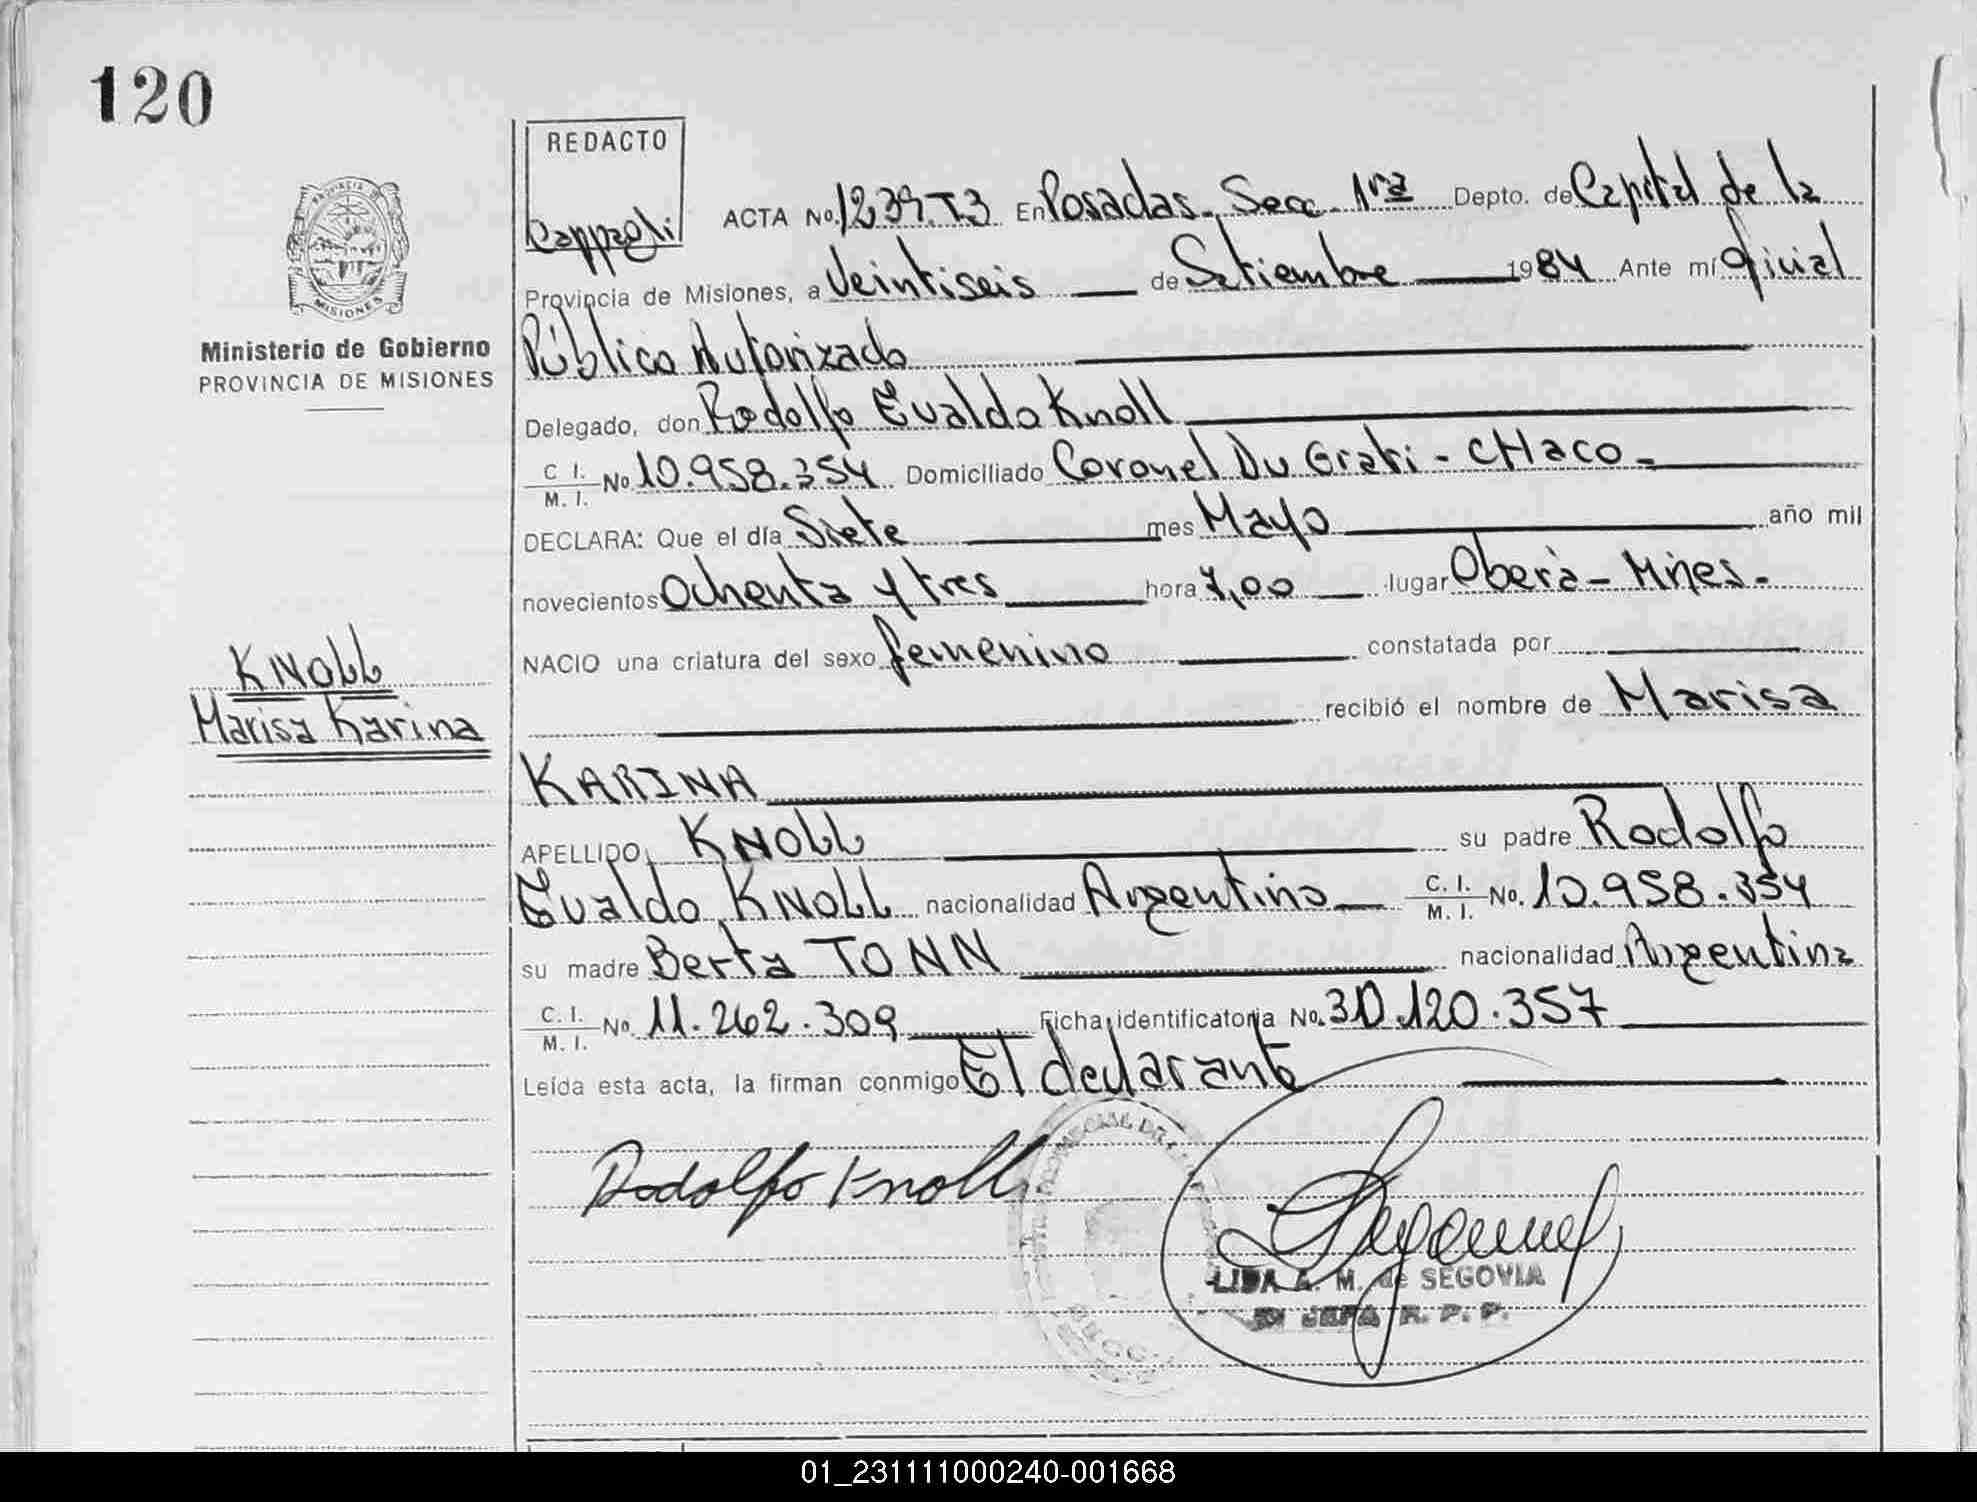 120
REDACTO
Cappagli
PROVINCIA DE MISIONES
Ministerio de Gobierno
PROVINCIA DE MISIONES
ACTA No. 1239.T3 En Posadas. Secc. 1ra Depto. de Capital de la
Provincia de Misiones, a Veintiseis de Setiembre 1984 Ante mí Oficial
Público Autorizado
Delegado, don Rodolfo Evaldo Knoll
C I. / M. I. No 10.958.354 Domiciliado Coronel Du Grati - CHaco -
DECLARA: Que el día Siete mes Mayo año mil
novecientos Ochenta y tres hora 7,00 lugar Oberà - Mnes. -
NACIO una criatura del sexo femenino constatada por
recibió el nombre de Marisa
KARINA
APELLIDO KNOLL su padre Rodolfo
Evaldo KNOLL nacionalidad Argentino C. I. / M. I. No. 10.958.354
su madre Berta TONN nacionalidad Argentina
C. I. / M. I. No. 11.262.309 Ficha identificatoria No. 30.120.357
Leída esta acta, la firman conmigo El declarante
KNOLL
Marisa Karina
Rodolfo Knoll
LIDA A. M. de SEGOVIA
JEFA R. P. P.
01_231111000240-001668